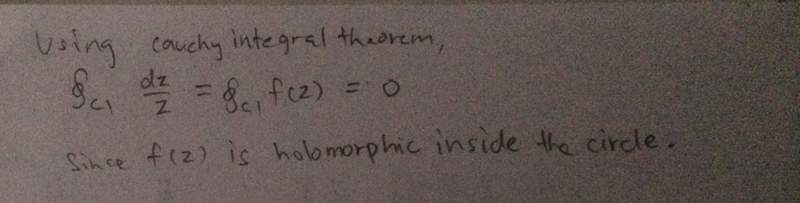 Using cauchy integral theorem,
∮c1 dz/z = ∮c1 f(z) = 0
Since f(z) is holomorphic inside the circle.